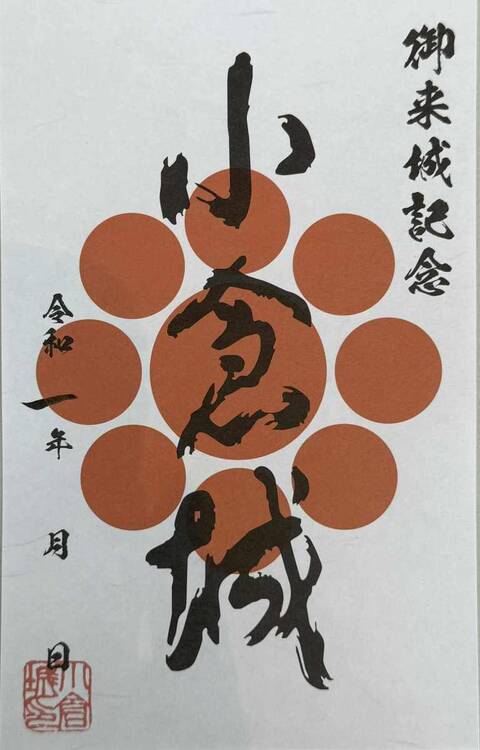 御来城記念
小倉城
令和一年 月 日
小倉
城印